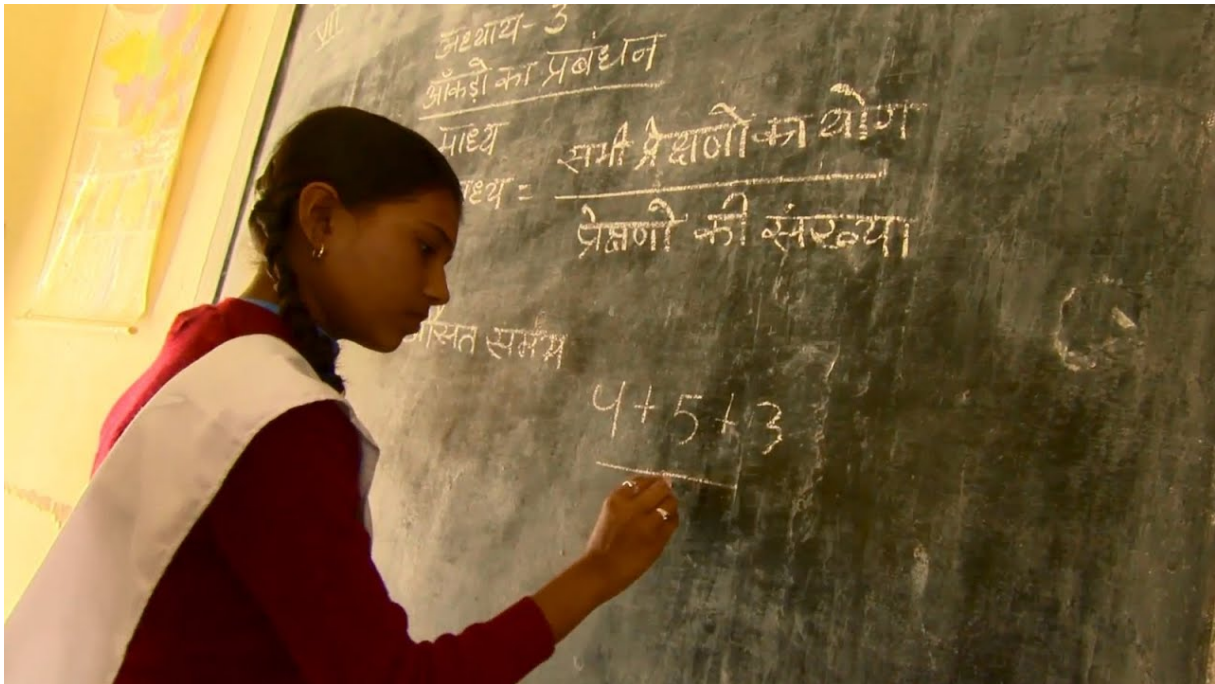 VII
अध्याय-3
आँकड़ो का प्रबंधन
माध्य
ध्य = सभी प्रेक्षणो का योग
प्रेक्षणो की संख्या
औसत समय
4+5+3